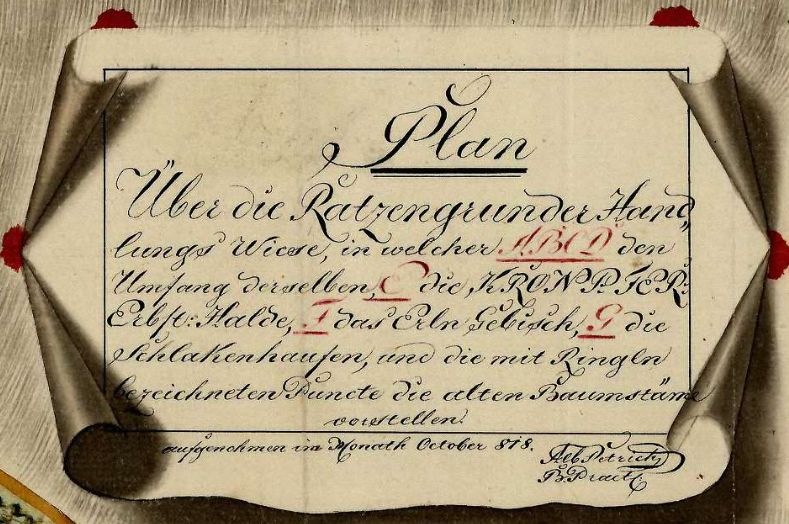 Plan
Über die Ratzengrunder Hand„
lungs Wiese, in welcher ABCD den
Umfang derselben, E die, KRONP:
Erbst: Halde, F das Erln Gebisch, G die
Schlakenhaufen, und die mit Ringln
bezeichneten Puncte die alten Baumstäme
vorstellen.
aufgenohmen im Monath October 818.
Alb Petrich
B: Pract: